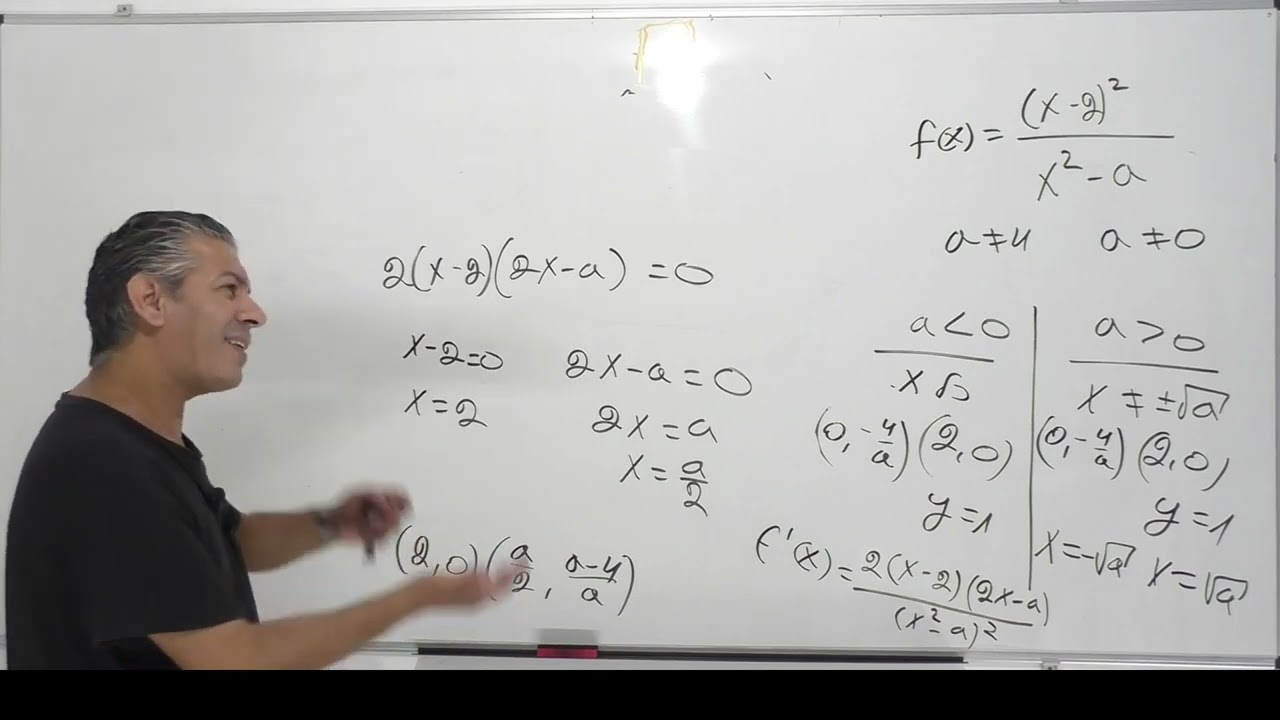 f(x) = (x-2)² / (x² - a)
a ≠ 4 a ≠ 0
2(x-2)(2x-a) = 0
x-2=0 2x-a=0
x=2 2x=a
x = a/2
(2,0) (a/2, (a-4)/a)
a<0
(0, -4/a) (2,0)
y=1
a>0
x ≠ ±√a
(0, -4/a) (2,0)
y=1
x=-√a x=√a
f'(x) = 2(x-2)(2x-a) / (x²-a)²